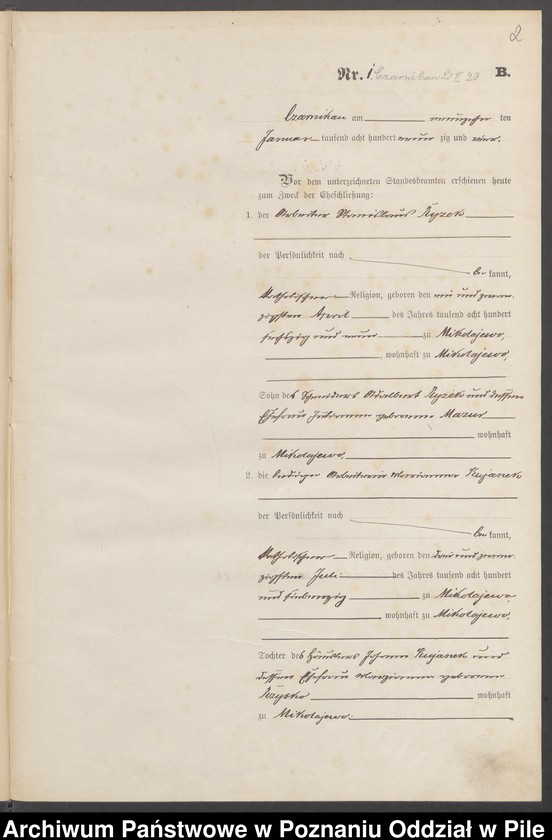 2
Nr. 1 Czarnikau B.
Czarnikau am neunzehn ten
Januar tausend acht hundert neun zig und vier.
Vor dem unterzeichneten Standesbeamten erschienen heute
zum Zweck der Eheschließung:
1. der Arbeiter Stanislaus Ryzek
der Persönlichkeit nach
be kannt,
katholischer Religion, geboren den ein und zwan-
zigsten April des Jahres tausend acht hundert
sechszig und neun zu Mikolajewo,
, wohnhaft zu Mikolajewo,
Sohn des Schneiders Adalbert Ryzek und dessen
Ehefrau geborene Mazur
wohnhaft
zu Mikolajewo
2. die ledige Arbeiterin Marianna Kujanek
der Persönlichkeit nach
be kannt,
katholischer Religion, geboren den drei und zwan-
zigsten Juli des Jahres tausend acht hundert
und siebenzig zu Mikolajewo
, wohnhaft zu Mikolajewo,
Tochter des Häuslers Johann Kujanek und
dessen Ehefrau Marianna geborene
wohnhaft
zu Mikolajewo.
Archiwum Państwowe w Poznaniu Oddział w Pile